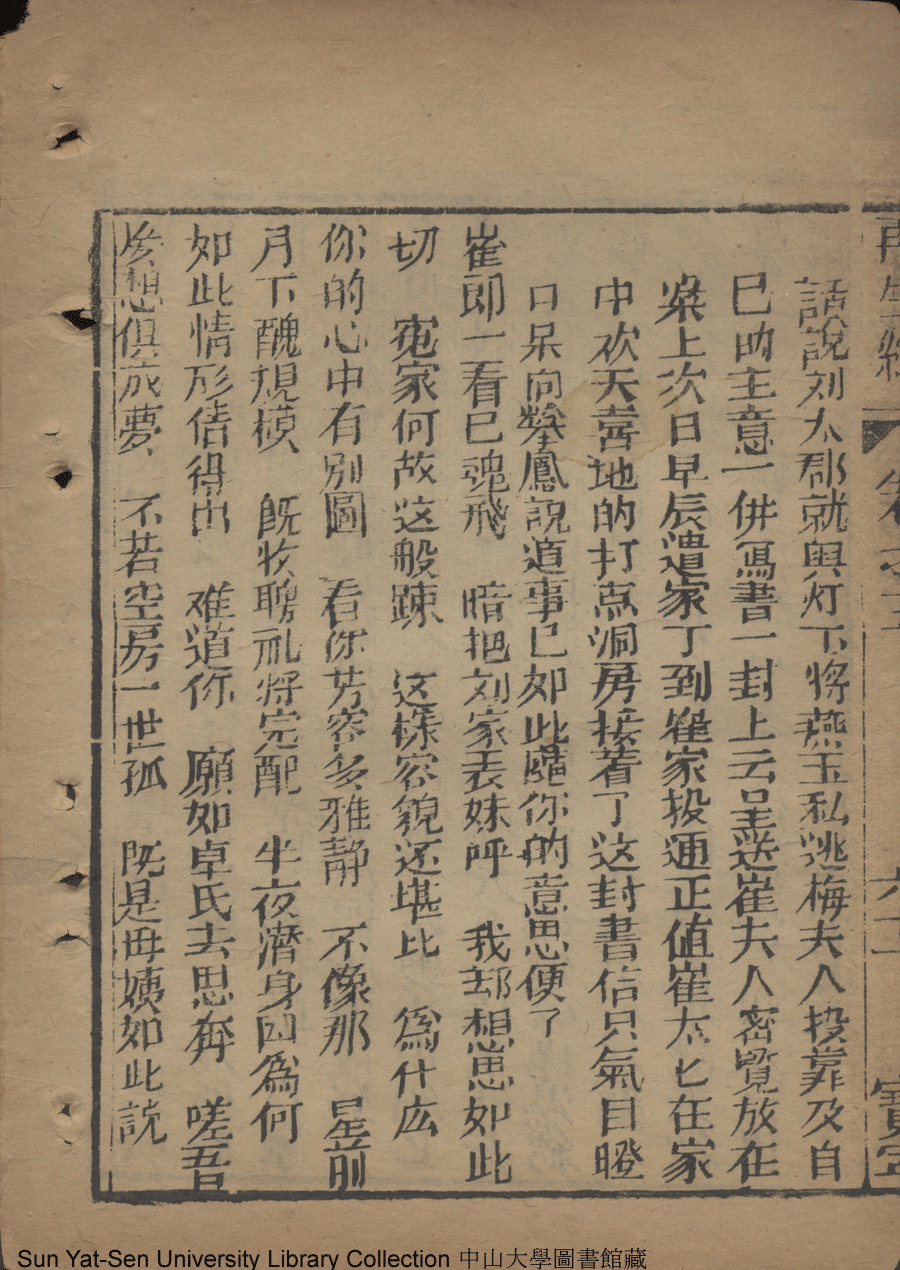 再生緣 卷之十 六十 寶寧
話說刘太郡就與灯下將燕玉私逃梅夫人投靠及自
巳的主意一併寫書一封上云呈送崔夫人密覽放在
桌上次日早辰遣家丁到崔家投通正值崔太匕在家
中欢天喜地的打点洞房接着了这封書信只氣目瞪
口呆向攀鳳說道事已如此隨你的意思便了
崔郎一看已魂飛 暗把刘家表妹呼 我却想思如此
切 寃家何故这般踈 这樣容貌还堪比 為什庅
你的心中有別圖 看你芳容多雅靜 不像那 星前
月下醜規模 既收聘礼將完配 半夜潛身因為何
如此情形倩得出 难道你 願如卓氏去思奔 嗟吾
叅想俱成夢 不若空房一世孤 既是毋姨如此説
Sun Yat-Sen University Library Collection 中山大學圖書館藏